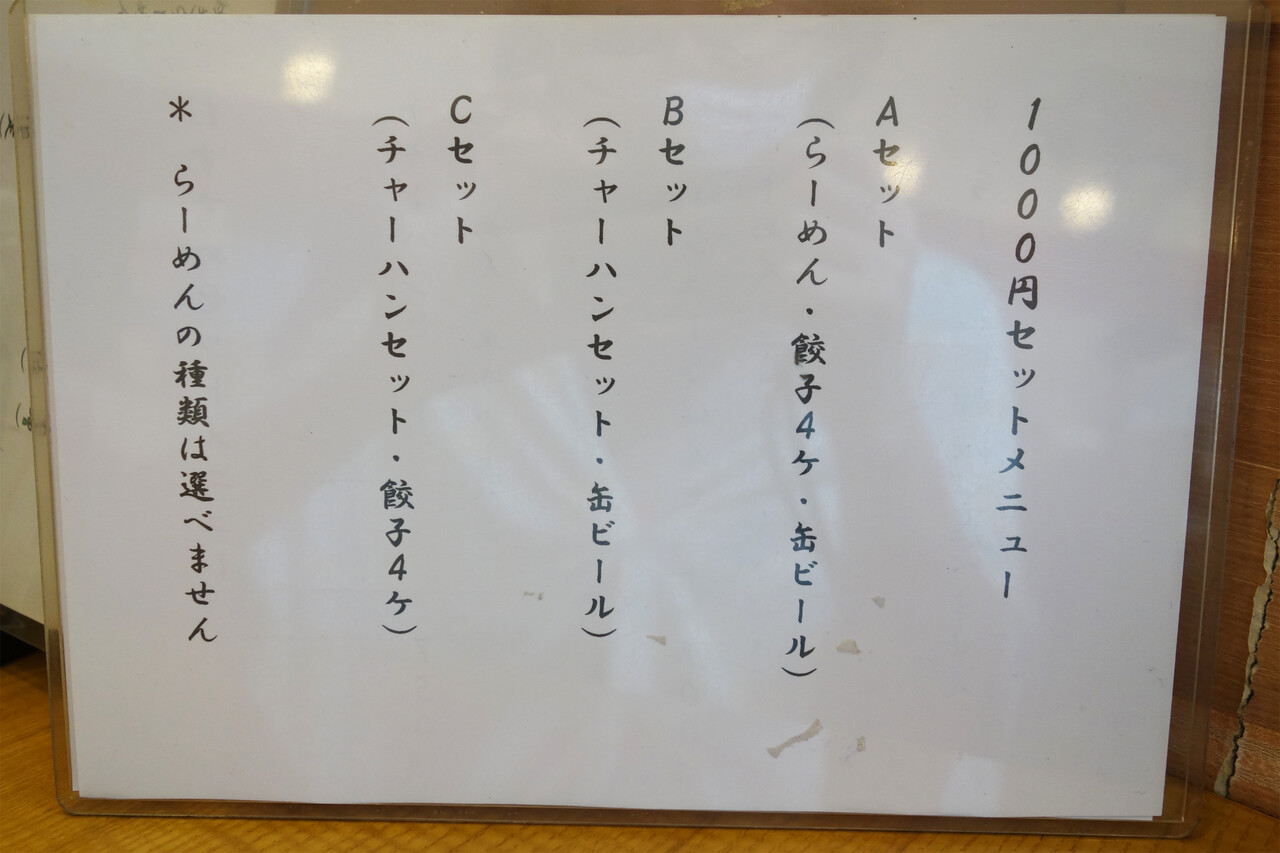 1000円セットメニュー
Aセット
（らーめん・餃子4ケ・缶ビール）
Bセット
（チャーハンセット・缶ビール）
Cセット
（チャーハンセット・餃子4ケ）
＊　らーめんの種類は選べません